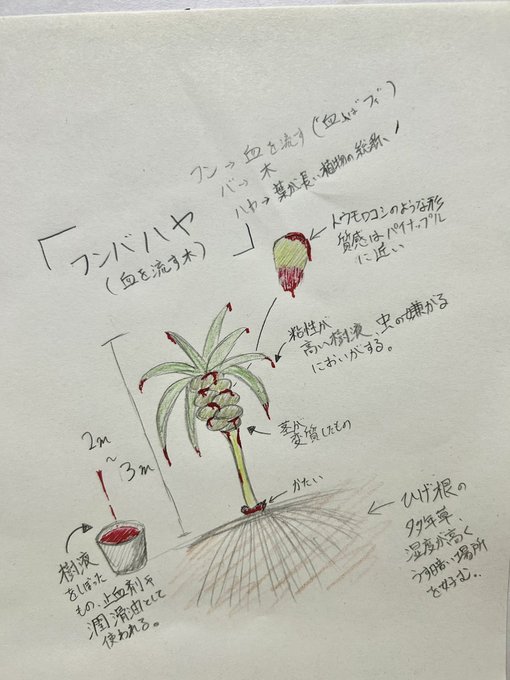 フン→血を流す(血はブブ)
バ→木
ハヤ→葉が長い植物の総称
「フンバハヤ」
(血を流す木)
トウモロコシのような形
質感はパイナップル
に近い
粘性が
高い樹液、虫の嫌がる
においがする。
茎が
変質したもの
2m
～
3m
かたい
ひげ根の
多年草
湿度が高く
うす暗い場所
を好む。
樹液
をしぼった
もの、止血剤や
潤滑油として
使われる。